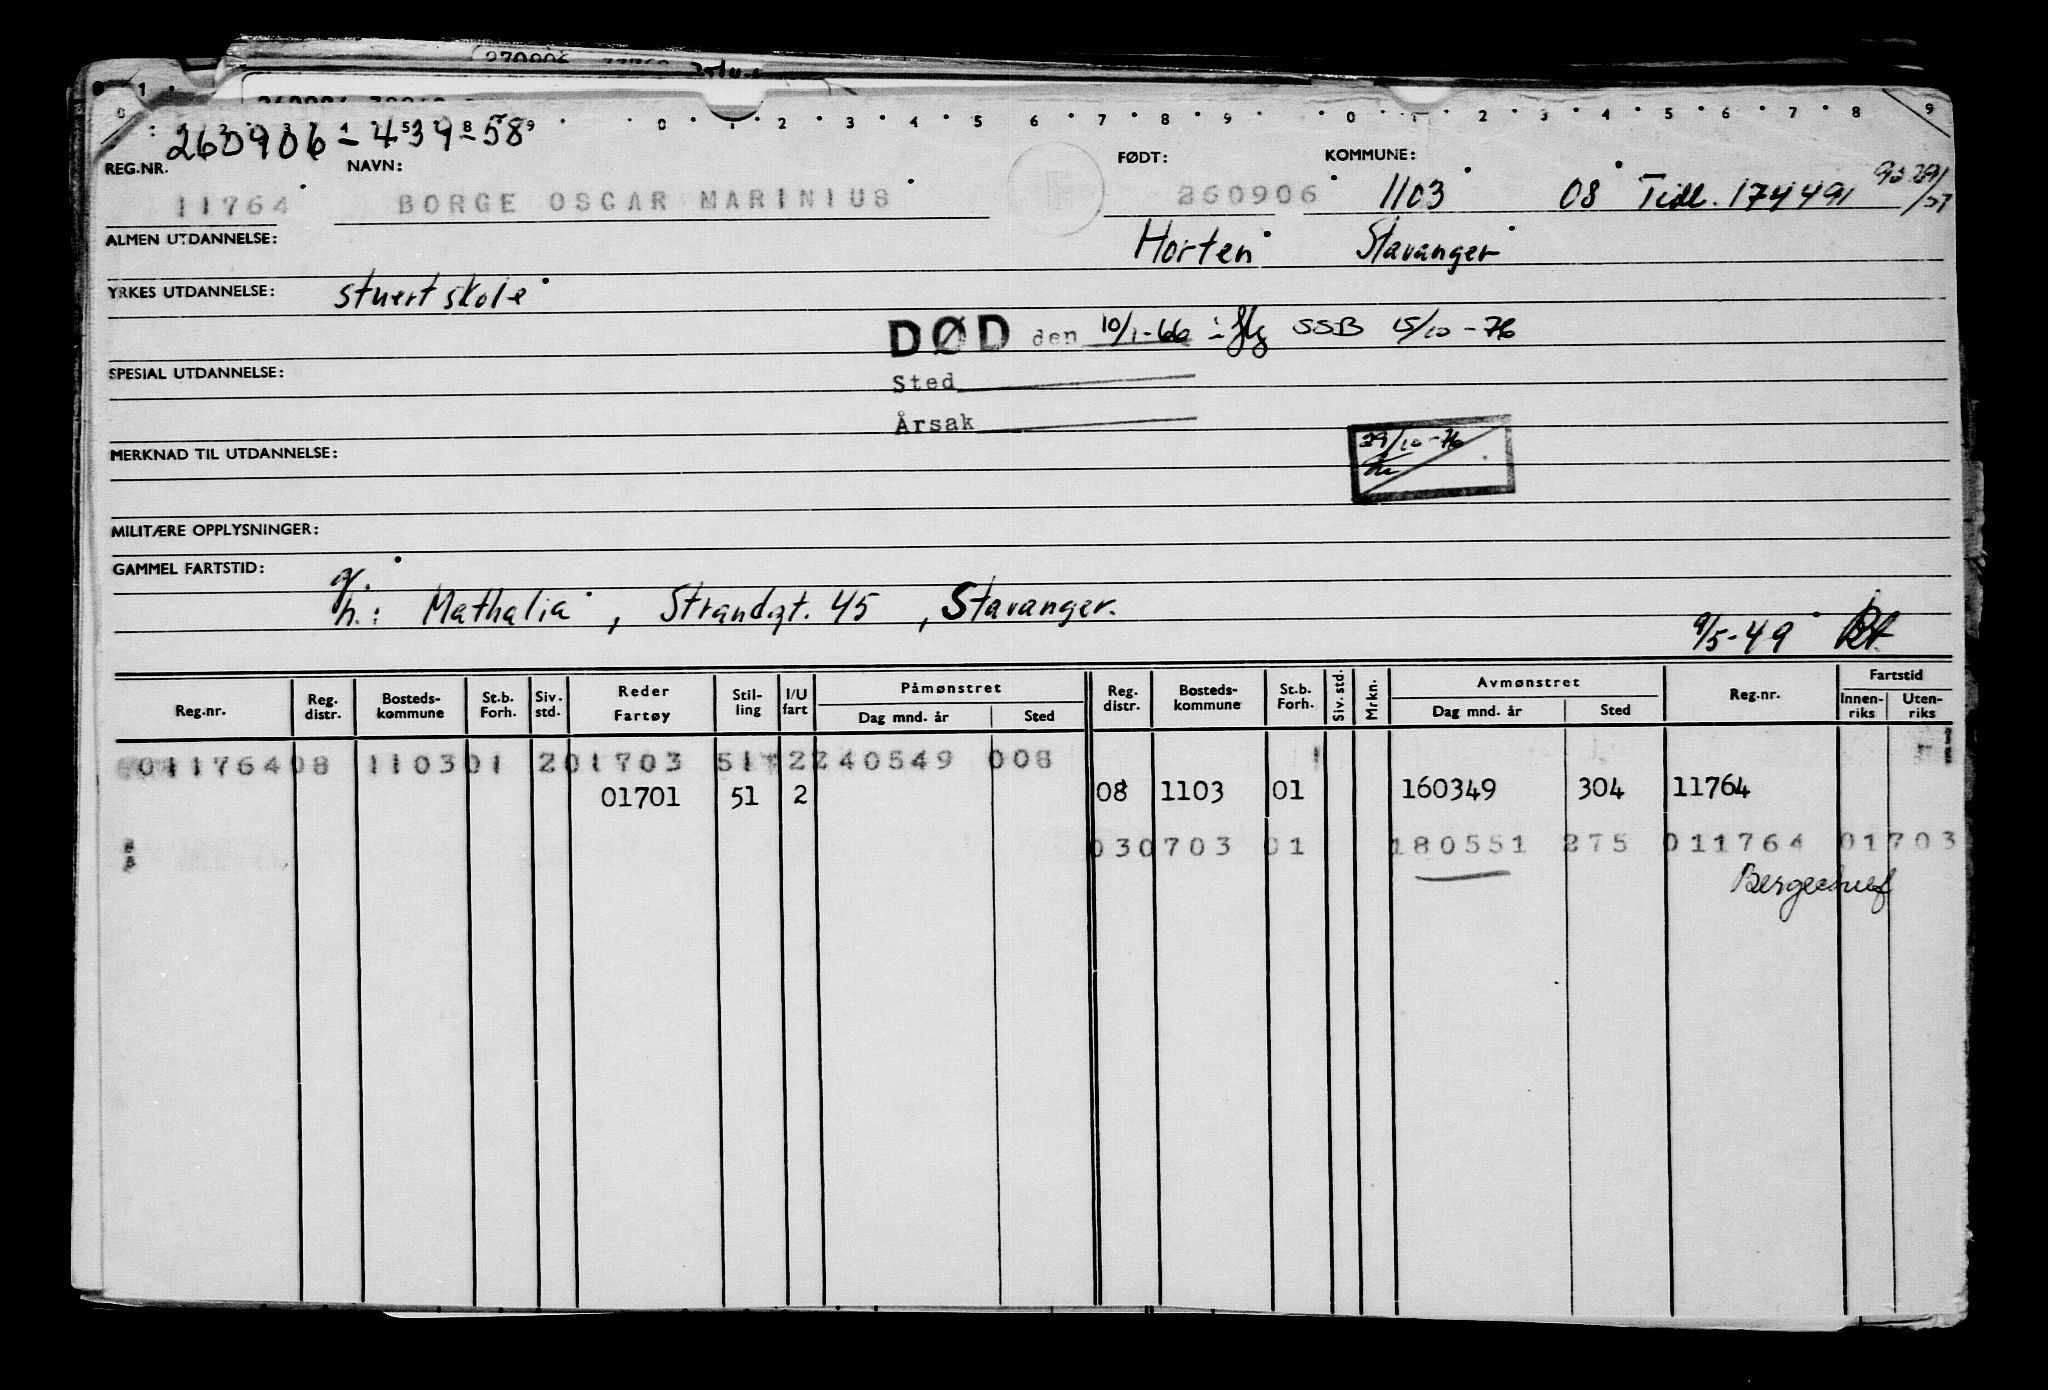 270906
260906
260906 - 439 - 58
REG.NR. NAVN: FØDT: KOMMUNE:
11764 BORGE OSCAR MARINIUS 260906 1103 08 Tidl. 174491
ALMEN UTDANNELSE: Horten Stavanger
YRKES UTDANNELSE: stuert skole
DØD den 10/1-66 SSB 15/10-76
SPESIAL UTDANNELSE:
Sted
Årsak
29/10-76
MERKNAD TIL UTDANNELSE:
MILITÆRE OPPLYSNINGER:
GAMMEL FARTSTID:
g.
h.: Mathalia, Strandgt. 45, Stavanger.
9/5-49
Reg.nr. Reg. distr. Bosteds-kommune St.b. Forh. Siv. std. Reder Fartøy Stil-ling I/U fart Påmønstret Dag mnd. år Sted Reg. distr. Bosteds-kommune St.b. Forh. Siv. std. Mrkn. Avmønstret Dag mnd. år Sted Reg.nr. Fartstid Innen-riks Uten-riks
011764 08 1103 01 2 01703 51 2 240549 008
01701 51 2 08 1103 01 160349 304 11764
030703 01 180551 275 011764 01703